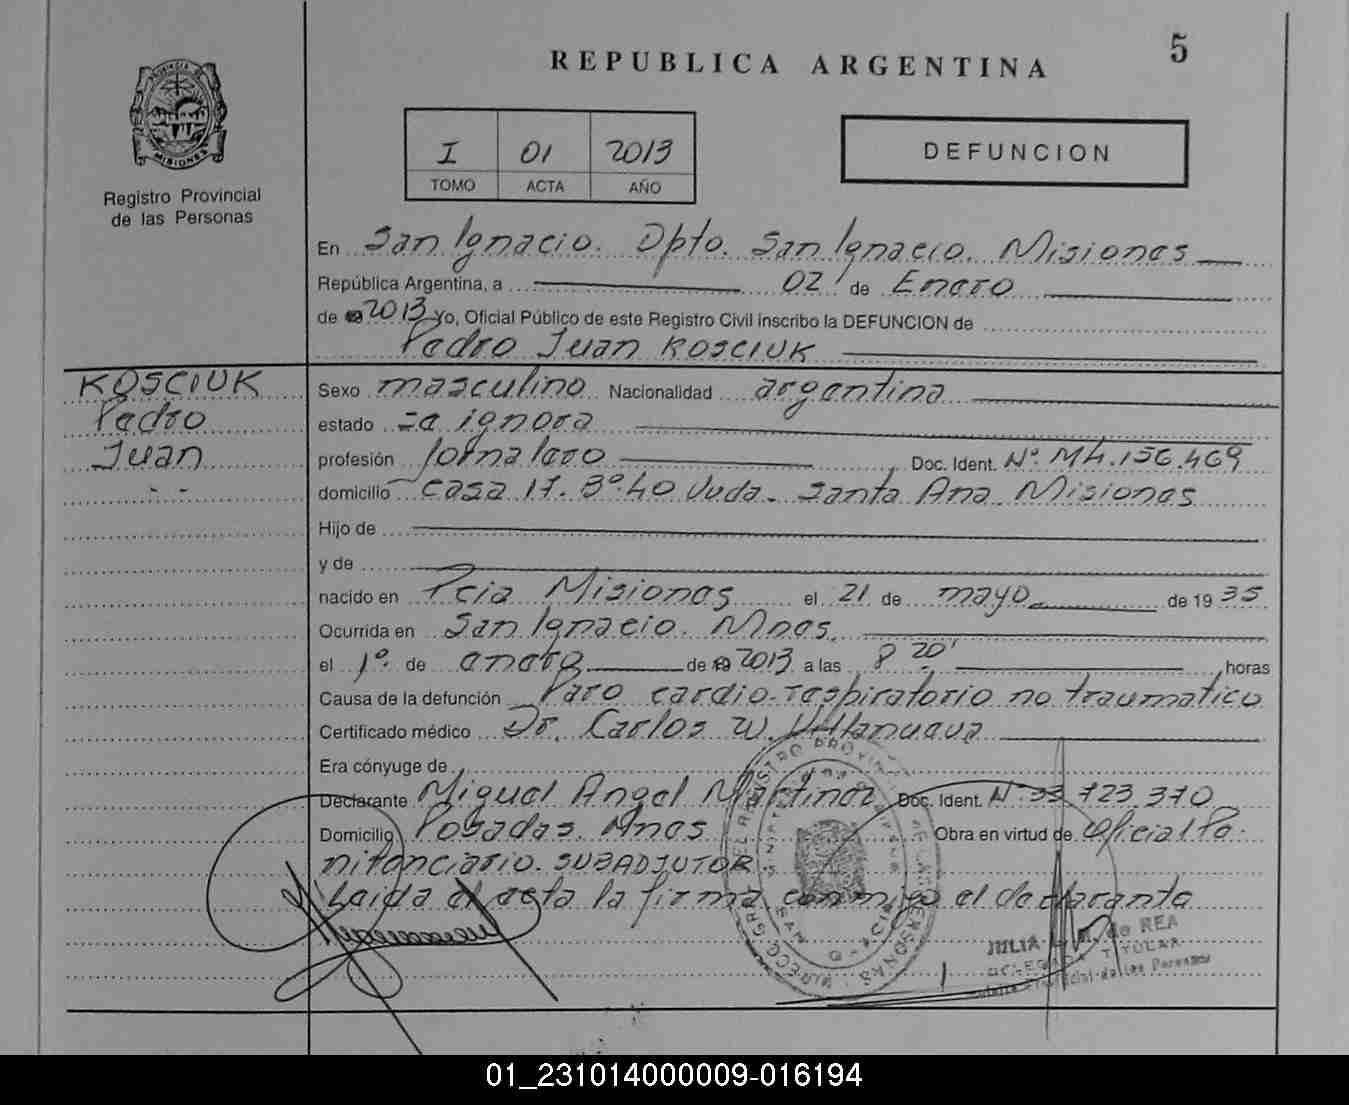 5
REPUBLICA ARGENTINA
PROVINCIA DE MISIONES
Registro Provincial
de las Personas
I 01 2013
TOMO ACTA AÑO
DEFUNCION
En San Ignacio. Dpto. San Ignacio. Misiones
República Argentina, a 02 de Enero
de 2013 Yo, Oficial Público de este Registro Civil inscribo la DEFUNCION de
Pedro Juan KOSCIUK
KOSCIUK
Pedro
Juan
Sexo masculino Nacionalidad argentina
estado se ignora
profesión Jornalero Doc. Ident. Nº M4.156.469
domicilio casa 17. Bº 40 Vvda. Santa Ana Misiones
Hijo de
y de
nacido en Pcia Misiones el 21 de mayo de 1935
Ocurrida en San Ignacio. Mnes.
el 1º de enero de 2013 a las 8 20' horas
Causa de la defunción Paro cardio-respiratorio no traumatico
Certificado médico Dr. Carlos W. Villanueva
Era cónyuge de
Declarante Miguel Angel Martinez Doc. Ident. Nº 33 723.370
Domicilio Posadas. Mnes Obra en virtud de Oficial Pe-
nitenciario. SUBADJUTOR
Leida el acta la firma conmigo el declarante
JULIA de REA
DELEGADA TITULAR
Provincial de las Personas
01_231014000009-016194